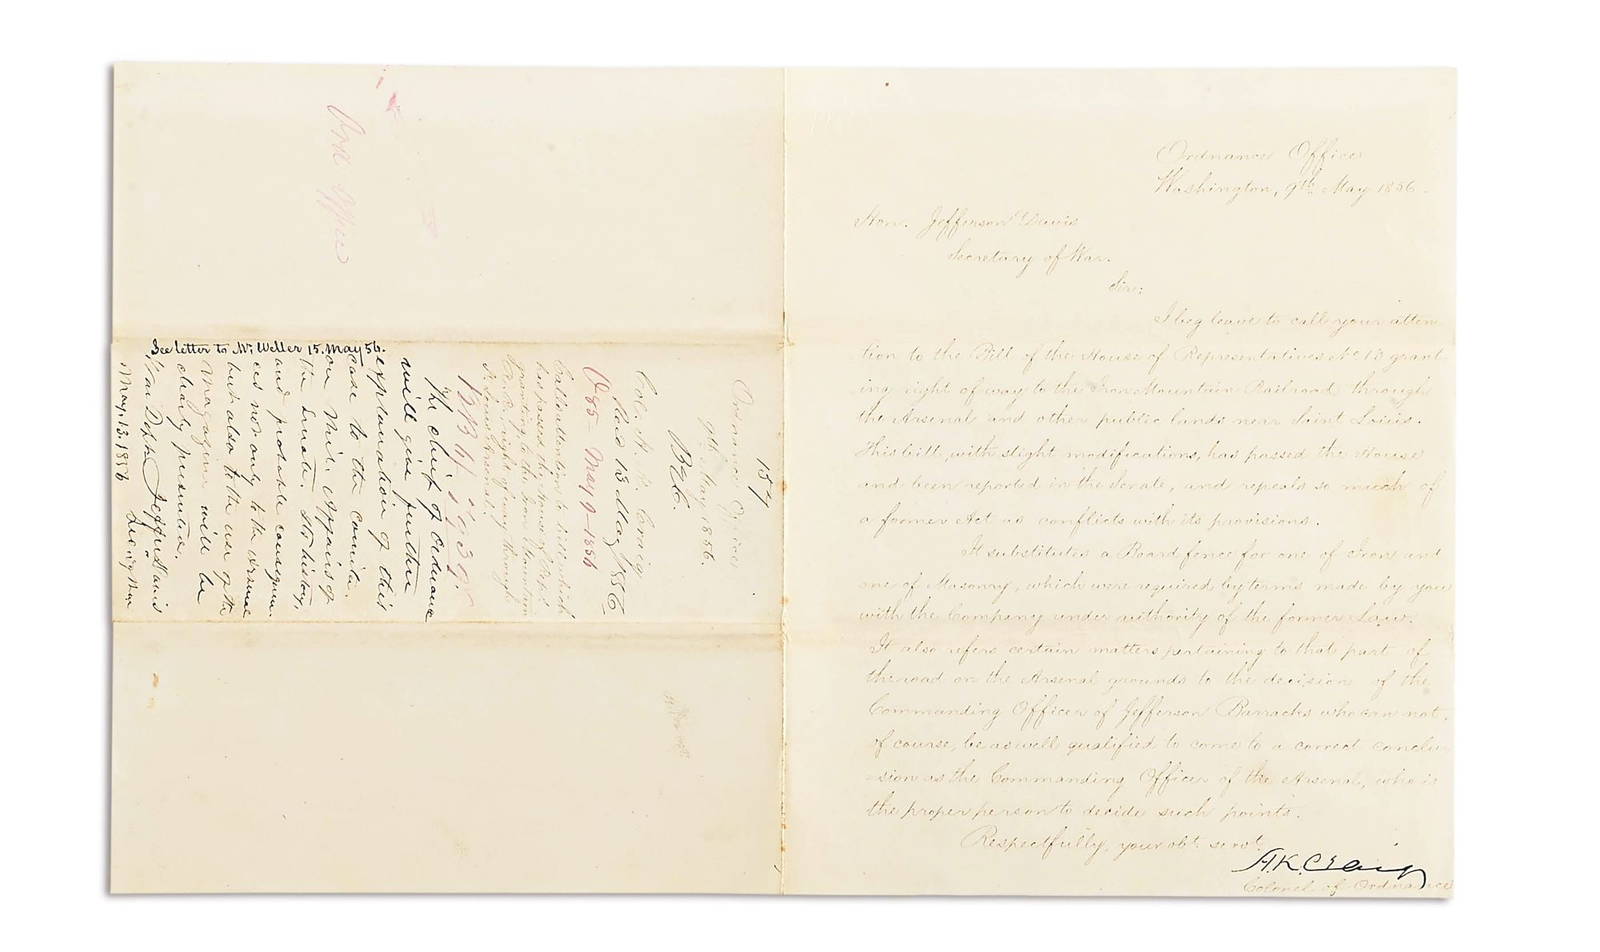 Ord Office
See letter to Mr Weller 15. May 56.
157
Ordnance Office
9th May 1856.
B26.
Col. H. K. Craig
Recd 13 May 1856
O85 - May 9 - 1856
Calls attention to bill which
has passed the House of Rep.
granting to the Iron Mountain
R. R. right of way through
St Louis Arsenal.
The chief of ordnance
will give further
explanation of this
case to the Comite.
on Mil. Affairs of
the Senate. Its history,
and probable consequen-
ces not only to the
but also to the use of the
magazine will be
clearly presented.
War Dept. Jeffn. Davis
May. 13. 1856 Sec. of War
Ordnance Office
Washington, 9th May 1856.
Hon. Jefferson Davis
Secretary of War.
Sir:
I beg leave to call your atten
tion to the Bill of the House of Representatives No 13 grant
ing right of way to the Iron Mountain Railroad through
the Arsenal and other public lands near Saint Louis.
This bill, with slight modifications, has passed the House
and been reported in the Senate, and repeals so much of
a former Act as conflicts with its provisions.
It substitutes a Board fence for one of Iron and
one of Masonry, which were required by terms made by you
with the Company under authority of the former Law.
It also refers certain matters pertaining to that part of
the road on the Arsenal grounds to the decision of the
Commanding Officer of Jefferson Barracks who can not,
of course, be as well qualified to come to a correct conclu-
-sion as the Commanding Officer of the Arsenal, who is
the proper person to decide such points.
Respectfully, your obt. servt.
H.K. Craig
Colonel of Ordnance